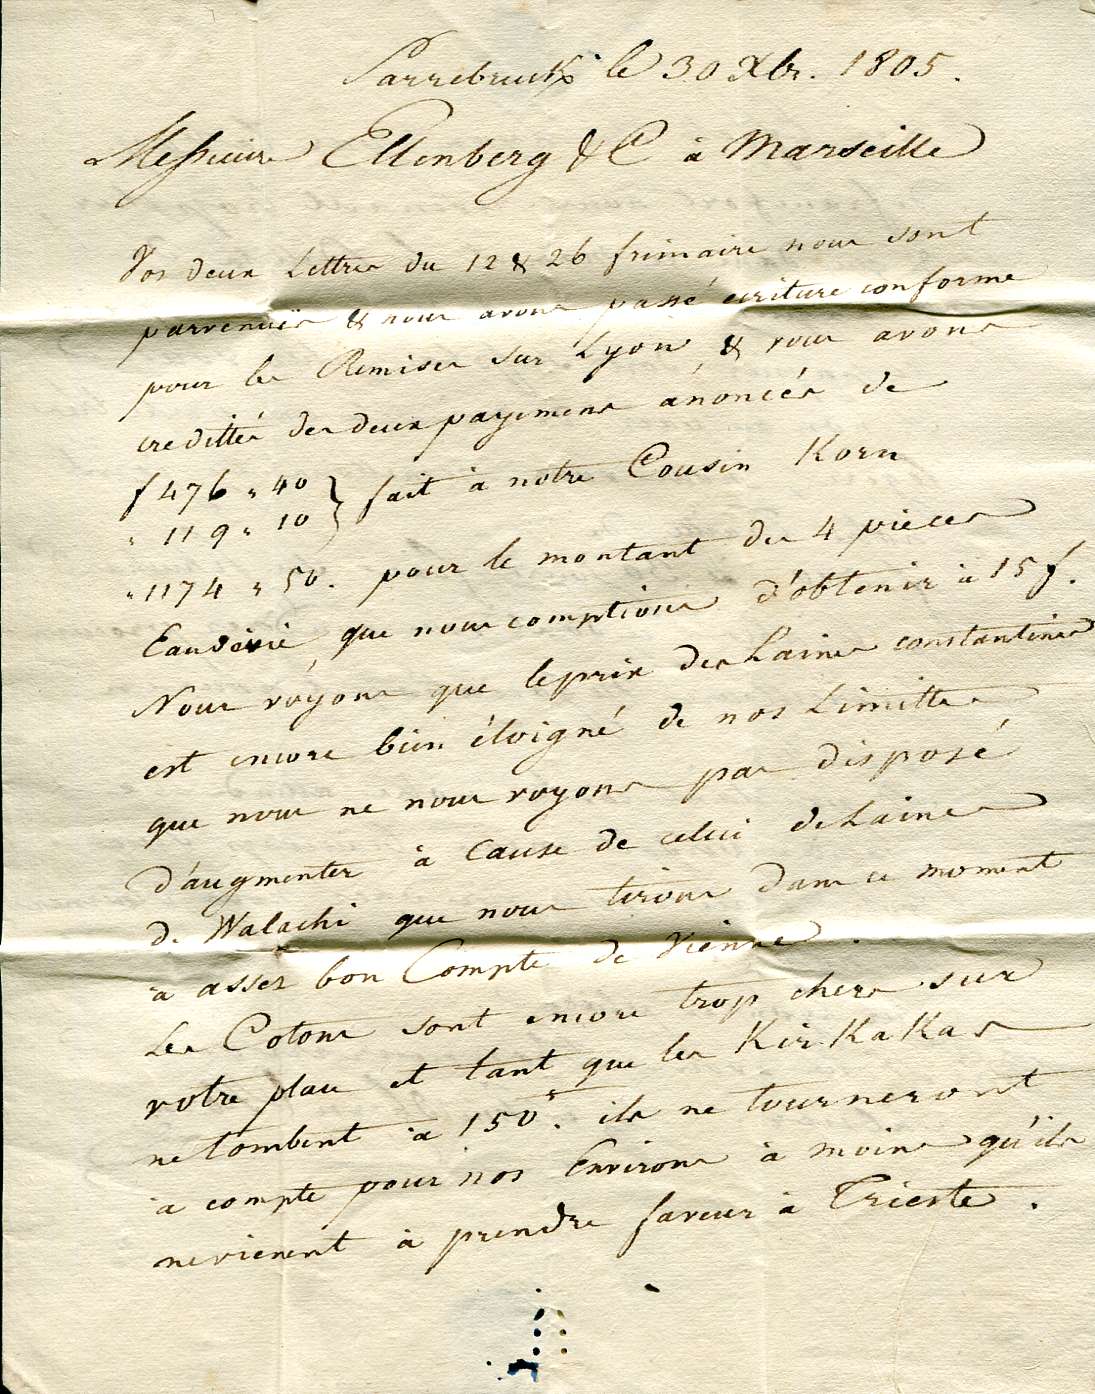 Sarrebruck le 30 Xbr. 1805.
Messieurs Ellenberg & C à Marseille
Vos deux Lettres du 12 & 26 frimaire nous sont
parvenuës & nous avons passé ecriture conforme
pour les Remises sur Lyon & vous avons
credittés des deux payemens anoncés de
f 476 " 40 } fait à notre Cousin Korn
" 119 " 10
" 1174 " 50. pour le montant des 4 pieces
Eaudevie que nous comptions d'obtenir à 15 f.
Nous voyons que le prix des Laines constantines
est encore bien éloigné de nos Limittes
que nous ne nous voyons pas disposé
d'augmenter à Cause de celui de Laines
d. Walachi que nous tirons dans ce moment
à assez bon Compte de Vienne.
Les Cotons sont encore trop chers sur
votre place et tant que les KirKaKas
ne tombent à 150 f. ils ne tourneront
à compte pour nos Environs à moins qu'ils
ne vienent à prendre faveur à Trieste.